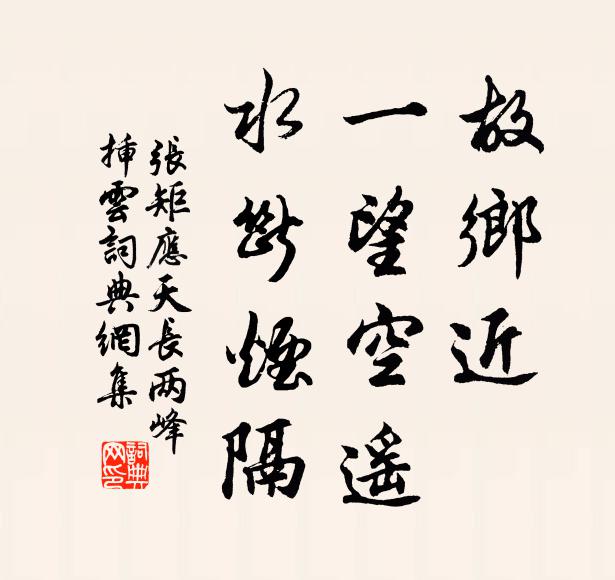 故鄉近
一望空遥
水斷煙隔
張矩應天長两峰
挿雲詞典網集
詞典网印